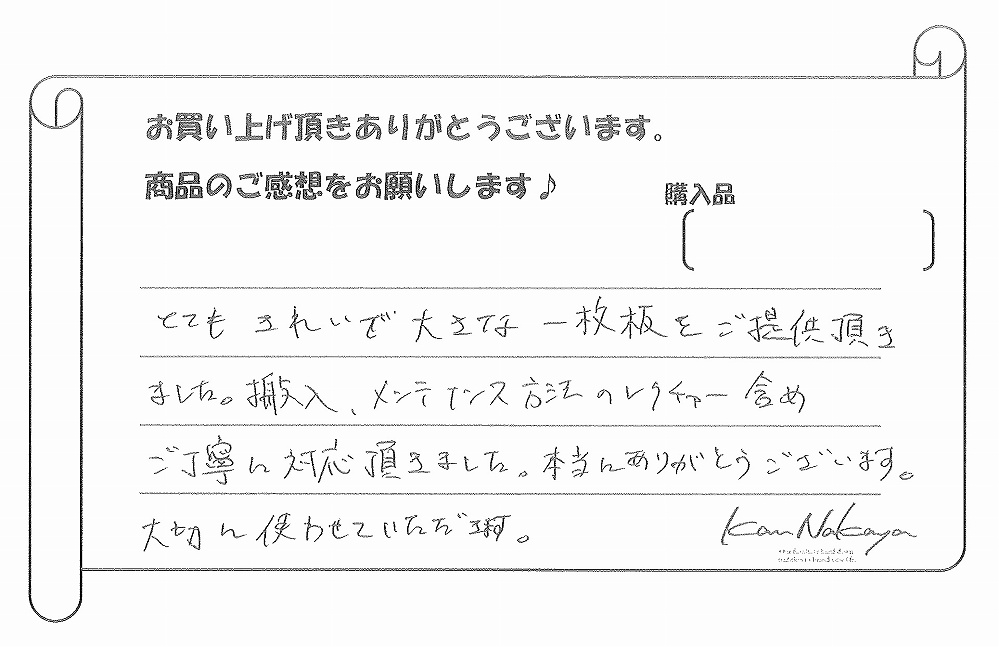 お買い上げ頂きありがとうございます。
商品のご感想をお願いします♪
購入品
とてもきれいで大きな一枚板をご提供頂き
ました。搬入、メンテナンス方法のレクチャー含め
ご丁寧に対応頂きました。本当にありがとうございます。
大切に使わせていただきます。
Kan Nakaya